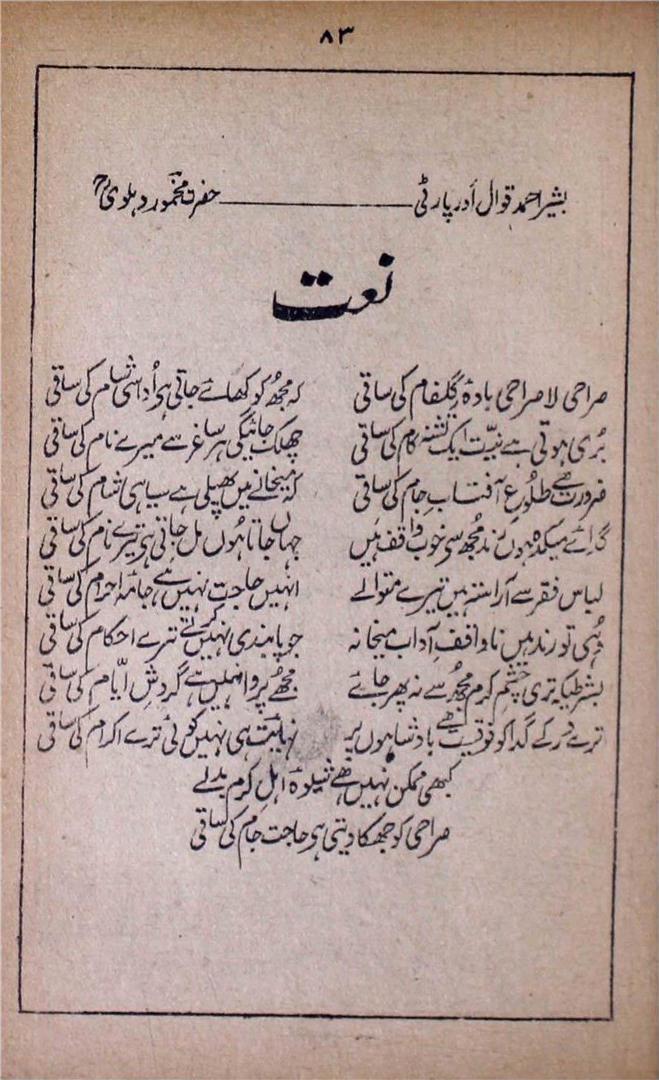 ۸۳
بشیر احمد قوال اور پارٹی ــــــــــ حضرت مخمور دہلوی رح
نعت
صراحی لا صراحی بادۂ گلفام کی ساقی کہ مجھ کو کھائے جاتی ہی اُداسی شام کی ساقی
بُری ہوتی ہے نیّت ایک تشنہ کام کی ساقی چھلک جائیگی ہر ساغر سے میرے نام کی ساقی
ضرورت ہے طلُوعِ آفتابِ جام کی ساقی کہ میخانے میں پھیلی ہے سیاہی شام کی ساقی
گدائے میکدہ ہوں رند مُجھ سی خوب واقف ہیں جہاں جاتا ہُوں مل جاتی ہی تیرے نام کی ساقی
لباسِ فقر سے آراستہ ہیں تیرے متوالے انہیں حاجت نہیں ہے جامۂ احرام کی ساقی
وہی تو رند ہیں ناواقفِ آدابِ میخانہ جو پابندی نہیں کرتے ترے احکام کی ساقی
بشرطیکہ تری چشمِ کرم مجھ سے نہ پھر جائے مجھے پروا نہیں ہے گردشِ ایّام کی ساقی
ترے در کے گدا کو فوقیت ہے بادشاہوں پر نہایت ہی نہیں کوئی ترے اکرام کی ساقی
کبھی ممکن نہیں ہے شیوۂ اہلِ کرم بدلے
صراحی کو جھکا دیتی ہی حاجت جام کی ساقی